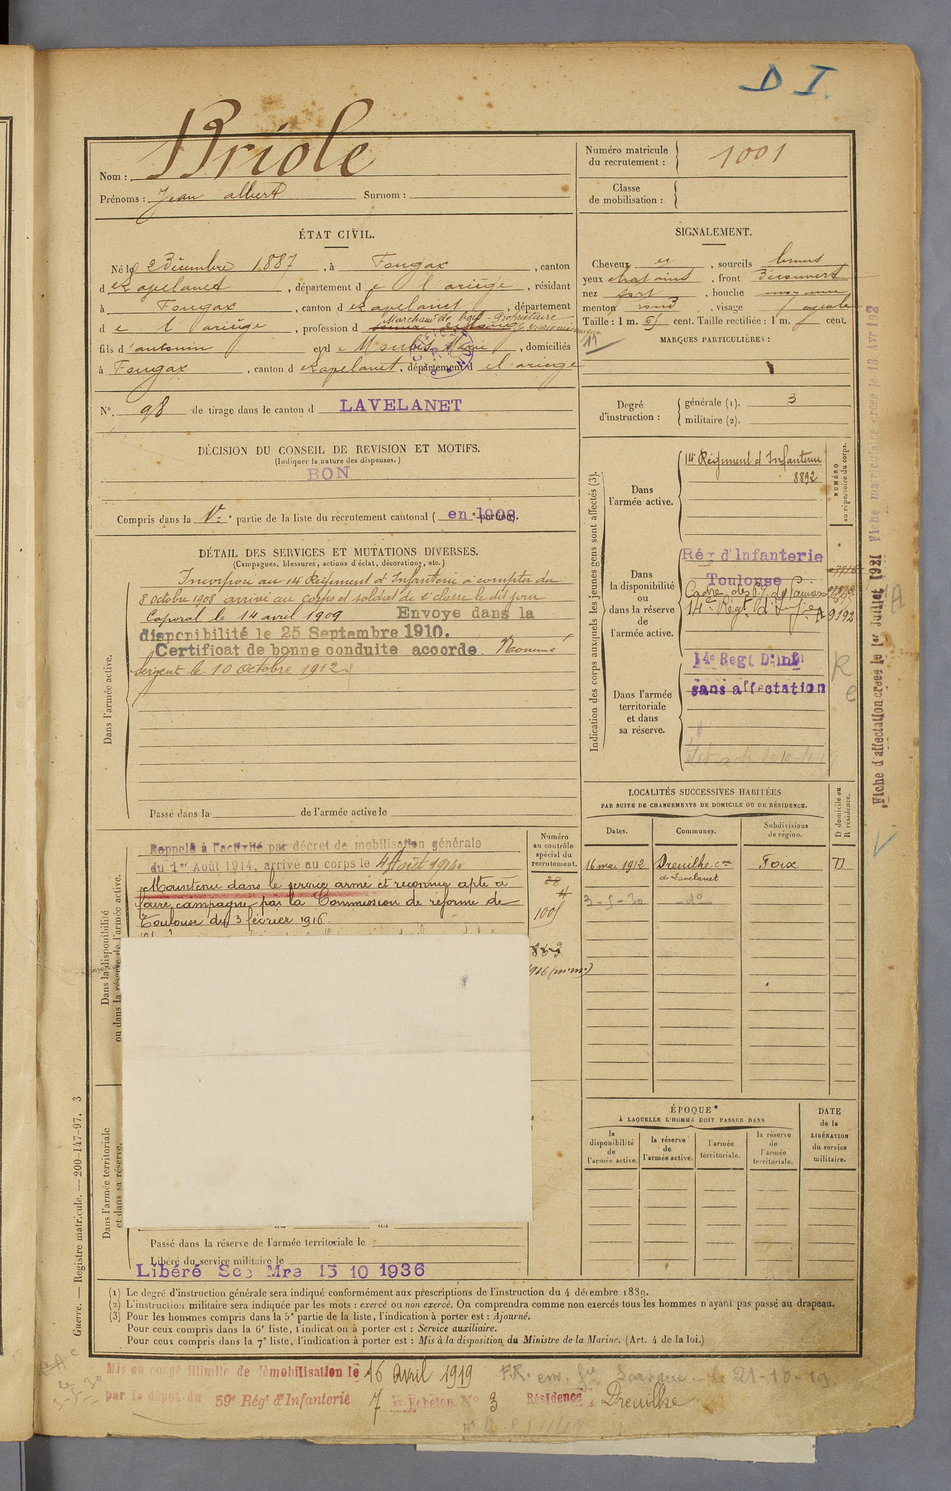 D I.
Nom : Briole
Prénoms : Jean albert Surnom :
Numéro matricule
du recrutement : 1001
Classe
de mobilisation :
ÉTAT CIVIL.
Né le 2 Décembre 1887, à Fougax, canton
d Lavelanet, département de l'ariège, résidant
à Fougax, canton d Lavelanet, département
Marchand de bois Propriétaire
de l'ariège, profession d
fils d'antonin et d, domiciliés
à Fougax, canton d Lavelanet, département d l'ariège
N° 98 de tirage dans le canton d LAVELANET
DÉCISION DU CONSEIL DE REVISION ET MOTIFS.
(Indiquer la nature des dispenses.)
BON
Compris dans la 1re partie de la liste du recrutement cantonal ( en 1908 ).
SIGNALEMENT.
Cheveux et, sourcils bruns
yeux chatains, front Découvert
nez fort, bouche moyenne
menton rond, visage ovale
Taille : 1 m. 61 cent. Taille rectifiée : 1 m. cent.
MARQUES PARTICULIÈRES :
Degré
d'instruction :
générale (1). 3
militaire (2).
DÉTAIL DES SERVICES ET MUTATIONS DIVERSES.
(Campagnes, blessures, actions d'éclat, décorations, etc.)
Dans l'armée active.
Incorporé au 14e Régiment d'Infanterie à compter du
8 octobre 1908 arrivé au corps et soldat de 2e classe le dit jour
Caporal le 14 avril 1909 Envoyé dans la
disponibilité le 25 Septembre 1910.
Certificat de bonne conduite accordé Nommé
Sergent le 10 octobre 1912
Passé dans la de l'armée active le
Indication des corps auxquels les jeunes gens sont affectés (3).
NUMÉRO
au répertoire du corps.
Dans
l'armée active.
14e Régiment d'Infanterie
8892
Dans
la disponibilité
ou
dans la réserve
de
l'armée active.
Rég d'Infanterie
Toulouse
14e Régt d'Infie
9192
Dans l'armée
territoriale
et dans
sa réserve.
14e Regt D'inf
sans affectation
Fiche matriculaire créée le 13 Avr 192
Fiche d'affectation créée le 1er Juillet 1921
LOCALITÉS SUCCESSIVES HABITÉES
PAR SUITE DE CHANGEMENTS DE DOMICILE OU DE RÉSIDENCE.
Dates.
Communes.
Subdivisions
de région.
D domicile ou
R résidence.
16 mai 1912 Dreuilhe con Foix D
de Lavelanet
3-5-30 do
Dans la disponibilité
ou dans la réserve de l'armée active.
Numéro
au contrôle
spécial du
recrutement.
Rappelé à l'activité par décret de mobilisation générale
du 1er Août 1914, arrivé au corps le 4 Août 1914
Maintenu dans le service armé et reconnu apte à
faire campagne par la Commission de réforme de
Toulouse du 3 février 1916.
Dans l'armée territoriale
et dans sa réserve.
Passé dans la réserve de l'armée territoriale le
Libéré du service militaire le
Libéré Sce Mre 15 10 1936
ÉPOQUE
À LAQUELLE L'HOMME DOIT PASSER DANS
la
disponibilité
de
l'armée active.
la réserve
de
l'armée active.
l'armée
territoriale.
la réserve
de
l'armée
territoriale.
DATE
de la
LIBÉRATION
du service
militaire.
(1) Le degré d'instruction générale sera indiqué conformément aux prescriptions de l'instruction du 4 décembre 1889.
(2) L'instruction militaire sera indiquée par les mots : exercé ou non exercé. On comprendra comme non exercés tous les hommes n'ayant pas passé au drapeau.
(3) Pour les hommes compris dans la 5e partie de la liste, l'indication à porter est : Ajourné.
Pour ceux compris dans la 6e liste, l'indication à porter est : Service auxiliaire.
Pour ceux compris dans la 7e liste, l'indication à porter est : Mis à la disposition du Ministre de la Marine. (Art. 4 de la loi.)
Guerre. — Registre matricule. — 200-147-97. 3
Mis en congé illimité de démobilisation le 16 Avril 1919
par le dépôt du 59e Régt d'Infanterie 7 Echelon N° 3 Résidence Dreuilhe